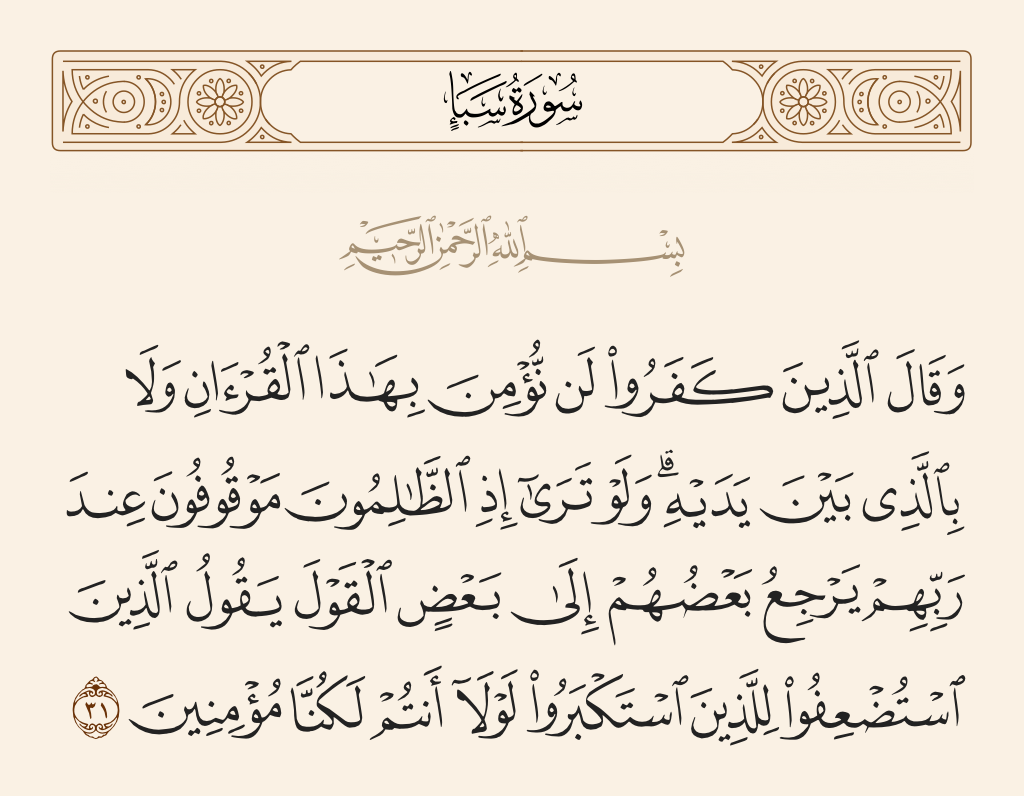 سُورَةُ سَبَإٍ
بِسْمِ ٱللَّهِ ٱلرَّحْمَٰنِ ٱلرَّحِيمِ
وَقَالَ ٱلَّذِينَ كَفَرُوا۟ لَن نُّؤْمِنَ بِهَـٰذَا ٱلْقُرْءَانِ وَلَا
بِٱلَّذِى بَيْنَ يَدَيْهِ ۗ وَلَوْ تَرَىٰٓ إِذِ ٱلظَّـٰلِمُونَ مَوْقُوفُونَ عِندَ
رَبِّهِمْ يَرْجِعُ بَعْضُهُمْ إِلَىٰ بَعْضٍ ٱلْقَوْلَ يَقُولُ ٱلَّذِينَ
ٱسْتُضْعِفُوا۟ لِلَّذِينَ ٱسْتَكْبَرُوا۟ لَوْلَآ أَنتُمْ لَكُنَّا مُؤْمِنِينَ ٣١